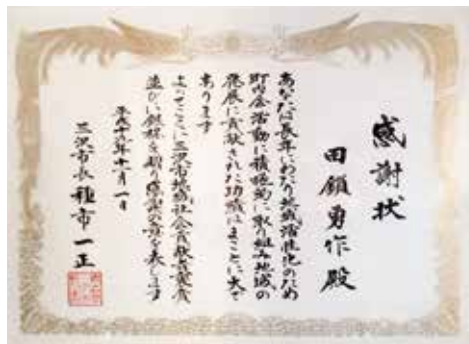 感謝状
田鎖勇作殿
あなたは長年にわたり地域活性化のため
町内会活動に積極的に取り組み地域の
発展に貢献された功績はまことに大で
あります
よってここに三沢市地域社会貢献褒賞
並びに銀杯を贈り感謝の意を表します
平成十九年十一月一日
三沢市長 種市一正